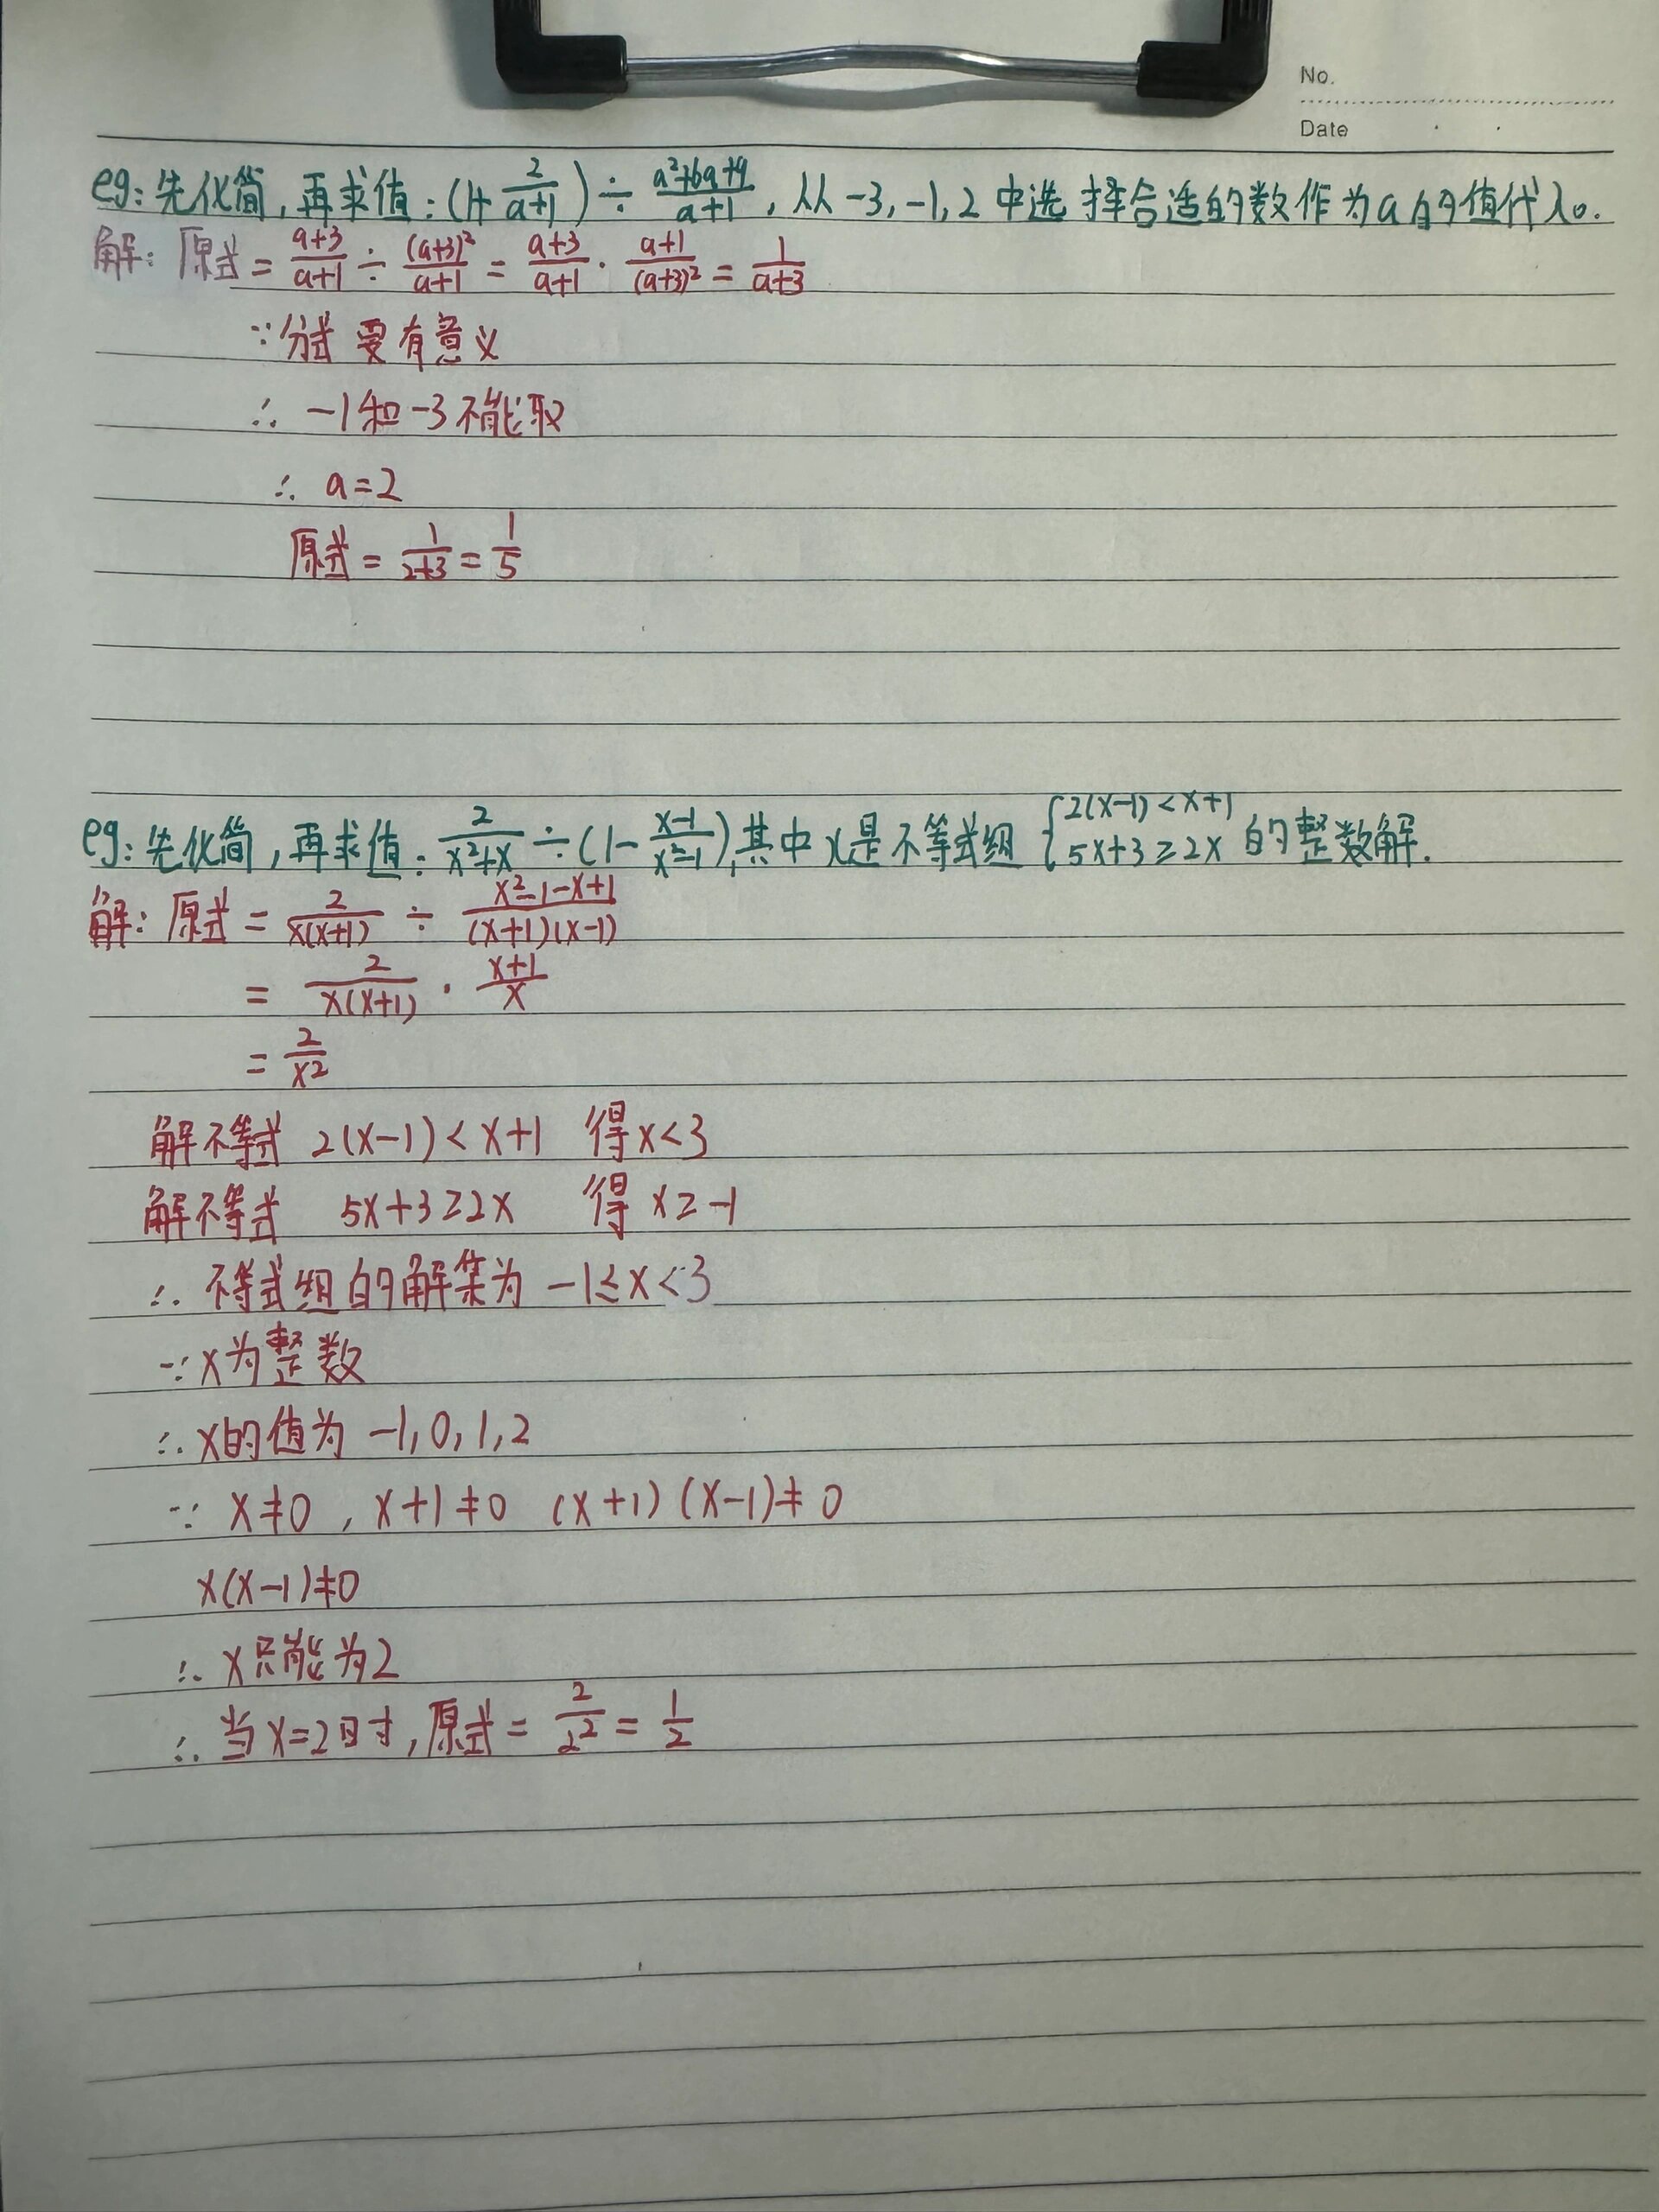 No.
Date
eg:先化简,再求值:(1+2/(a+1))÷(a²+6a+9)/(a+1),从-3,-1,2中选择合适的数作为a的值代入。.
解:原式=(a+3)/(a+1)÷(a+3)²/(a+1)=(a+3)/(a+1)·(a+1)/(a+3)²=1/(a+3)
∵分式要有意义
∴-1和-3不能取
∴a=2
原式=1/(2+3)=1/5
eg:先化简,再求值:2/(x²+x)÷(1-(x-1)/(x²-1)),其中x是不等式组{2(x-1)<x+1 5x+3≥2x的整数解.
解:原式=2/(x(x+1))÷(x²-1-x+1)/((x+1)(x-1))
=2/(x(x+1))·(x+1)/x
=2/x²
解不等式 2(x-1)<x+1 得x<3
解不等式 5x+3≥2x 得x≥-1
∴不等式组的解集为-1≤x<3
∵x为整数
∴x的值为-1,0,1,2
∵x≠0,x+1≠0 (x+1)(x-1)≠0
x(x-1)≠0
∴x只能为2
∴当x=2时,原式=2/2²=1/2